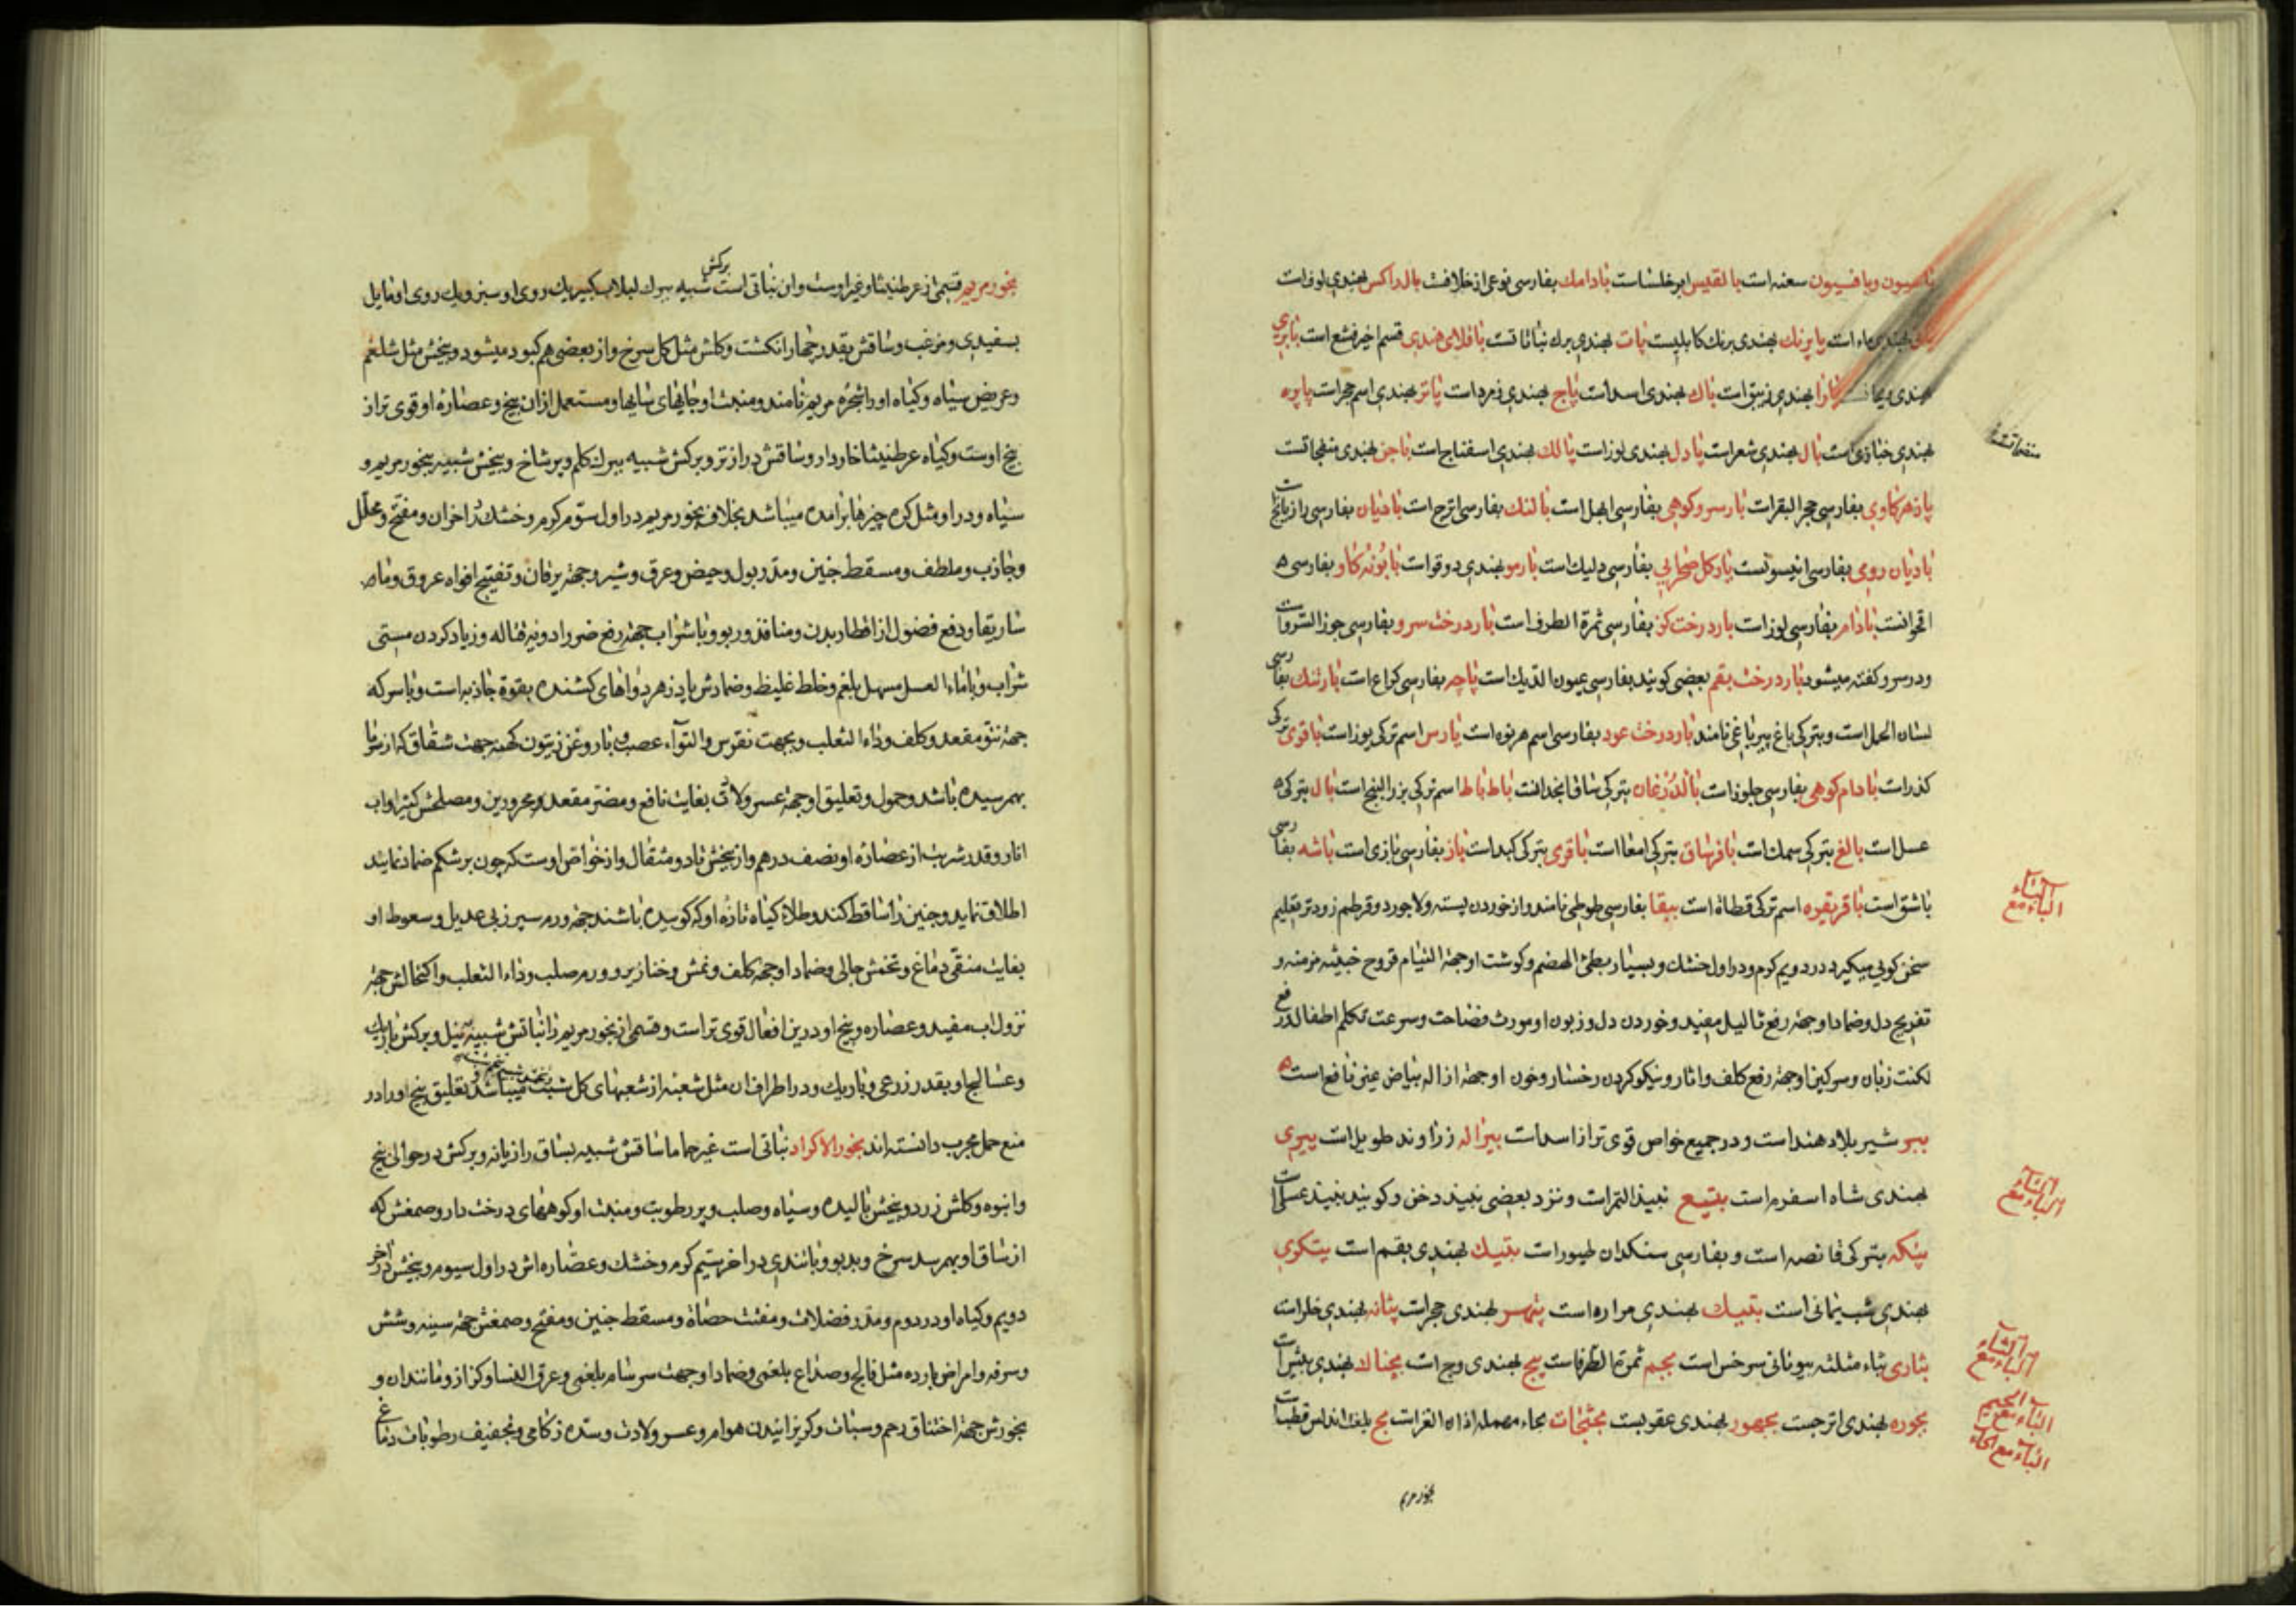 بافسیون سعنه است بالقدیس ایرخلسا است بادامك بفارسی نوعی از خلافست بالداکس بهندی لوف است
بهندی ماء است بابرنك بهندی برنك کابلیست پات بهندی برك نباتاتست باقلای هندی قسم اخیر فشع است بابری
بهندی پارا بهندی زیبق است باك بهندی اسد است پاچ بهندی زمرد است پاتر بهندی اسم حجر است پاپوه
بهندی خبازی است بال بهندی شعر است بادل بهندی لوز است پالك بهندی اسفناج است
پادزهر کاوی بفارسی حجر البقر است بار سرو کوهی بفارسی ابهل است بالنك بفارسی اترج است بادیان بفارسی رازیانج است
بادیان رومی بفارسی انیسونست بارکل صحرایی بفارسی دلیك است بارمو بهندی دوقو است بابونه کاو بفارسی
اقحوانست بادام بفارسی لوز است بار درخت کز بفارسی ثمرة الطرفا است بار درخت سرو بفارسی جوز السرو است
و در سرو کفته میشود بار درخت بقم بعضی کویند بفارسی عیون الدیك است پاچه بفارسی کراع است بارتنك بفارسی
لسان الحمل است و بترکی باغ یپرباغی نامند بار درخت عود بفارسی اسم هرنوه است پارس اسم ترکی یوز است باقوی ترکی
کذر است بادام کوهی بفارسی جلوز است بالدرغان بترکی ساق انجدانست باط باط اسم ترکی بزر البنج است بال بترکی
عسل است بالغ بترکی سمك است باغرساق بترکی امعا است باقری بترکی کبد است باز بفارسی بازی است باشه بفارسی
باشق است باقرقوه اسم ترکی قطاة است ببقا بفارسی طوطی نامند و از خوردن پسته و لاجورد و قرطم زودتر تعلیم
سخن کویی میکیرد در دویم کرم و در اول خشك و بسیار بطئ الهضم و کوشت او جهة التیام قروح خبیثه مزمنه و
تفریح دل و ضماد او جهة رفع ثالیل مفید و خوردن دل و زبون او مورث فصاحت و سرعت تکلم اطفال و در رفع
لکنت زبان و سرکین او جهة رفع کلف و اثار و نیکو کردن رخسار و خون او جهة ازاله بیاض عین نافع است
ببر شیر بلاد هند است و در جمیع خواص قوی تر از اسد است بیراله زراوند طویل است ببری
بهندی شاه اسفرم است بتیع نبیذ التمر است و نزد بعضی نبیذ دخن و کویند نبیذ عسل است
بتکه بترکی قانصه است و بفارسی سنکدان طیور است بتیك بهندی بقم است بتکوی
بهندی شب یمانی است بتیك بهندی مراره است پتهر بهندی حجر است بتانه بهندی خلر است
بثاری بثاء مثلثه بیونانی سرخس است بجم ثمرة الطرفا است بج بهندی وج است بجنالا بهندی بیش است
بجوره بهندی اترجست بجهور بهندی عقربست بحثجاث بحاء مهمله اذان الغزات بح بلغت اندلس قطب است
الباء مع الباء
الباء مع التاء
الباء مع الثاء
الباء مع الجیم
الباء مع الحاء
بخور مریم
بخور مریم قسمی از عرطنیثا و غیر اوست و ان نباتی است برکش شبیه ببرك لبلاب کبیر یك روی او سبز و یك روی او مایل
بسفیدی و مزغب و ساقش بقدر چهار انکشت و کلش مثل کل سرخ و از بعضی هم کبود میشود و بیخش مثل شلغم
و عریض سیاه و کیاه او را شجره مریم نامند و منبت او جایهای سایها و مستعمل از ان بیخ و عصاره او قوی تر از
بیخ اوست و کیاه عرطنیثا خاردار و ساقش دراز تر و برکش شبیه ببرك کلم و پر شاخ و بیخش شبیه ببخور مریم و
سیاه و در او مثل کره چیزها برامده میباشد بخلاف بخور مریم در اول سوم کرم و خشك در اخر ان و مفتح و محلل
و جاذب و ملطف و مسقط جنین و مدر بول و حیض و عرق و شیر و جهة یرقان و تفتیح افواه عروق و ماء
ساریقا و دفع فضول از اقطار بدن و منافذ و ربو و با شراب جهة رفع ضرر ادویه قتاله و زیاد کردن مستی
شراب و با ماء العسل مسهل بلغم و خلط غلیظ و ضمادش پادزهر دواهای کشنده بقوة جاذبه است و با سرکه
جهة نتو مقعد و کلف و داء الثعلب و بجهت نقرس و التواء عصب و با روغن زیتون کهنه جهت شقاق که از سرما
بهم رسیده باشد و حمول و تعلیق او جهة عسر ولادت بغایت نافع و مضر مقعد و محرورین و مصلحش کثیرا و اب
انار و قدر شربت از عصاره او نصف درهم و از بیخش تا دو مثقال و از خواص اوست که چون بر شکم ضماد نمایند
اطلاق نماید و جنین را ساقط کند و طلاء کیاه تازه او که کوبیده باشند جهة ورم سپرز بی عدیل و سعوط او
بغایت منقی دماغ و نخمش جالی و ضماد او جهة کلف و نمش و خنازیر و ورم صلب و داء الثعلب و اکتحالش جهة
نزول اب مفید و عصاره و بیخ او در این افعال قوی تر است و قسمی از بخور مریم را نباتش شبیه بنیل و برکش باریك
و عسالیج او بقدر زرعی و باریك و در اطراف ان مثل شعبه از شعبهای کل شبت میباشد تعلیق بیخ او را در
منع حمل مجرب دانسته اند بخور الاکراد نباتی است غیر جاما ساقش شبیه بساق رازیانه و برکش در حوالی بیخ
و انبوه و کلش زرد و بیخش بالیده و سیاه و صلب و پر رطوبت و منبت او کوههای درخت دار و صمغش که
از ساق او بهم رسد سرخ و بدبو و با تندی در اخر سیم کرم و خشك و عصاره اش در اول سیوم و بیخش در اخر
دویم و کیاه او در دوم و مدر فضلات و مفتت حصاة و مسقط جنین و مفتح و صمغش جهة سینه و شش
و سرفه و امراض بارده مثل فالج و صداع بلغمی و ضماد او جهت سرسام بلغمی و عرق النسا و کزاز و مانند ان و
بخورش جهة اختناق رحم و سبات و کریزانیدن هوام و عسر ولادت و سده زکامی و تجفیف رطوبات دماغ